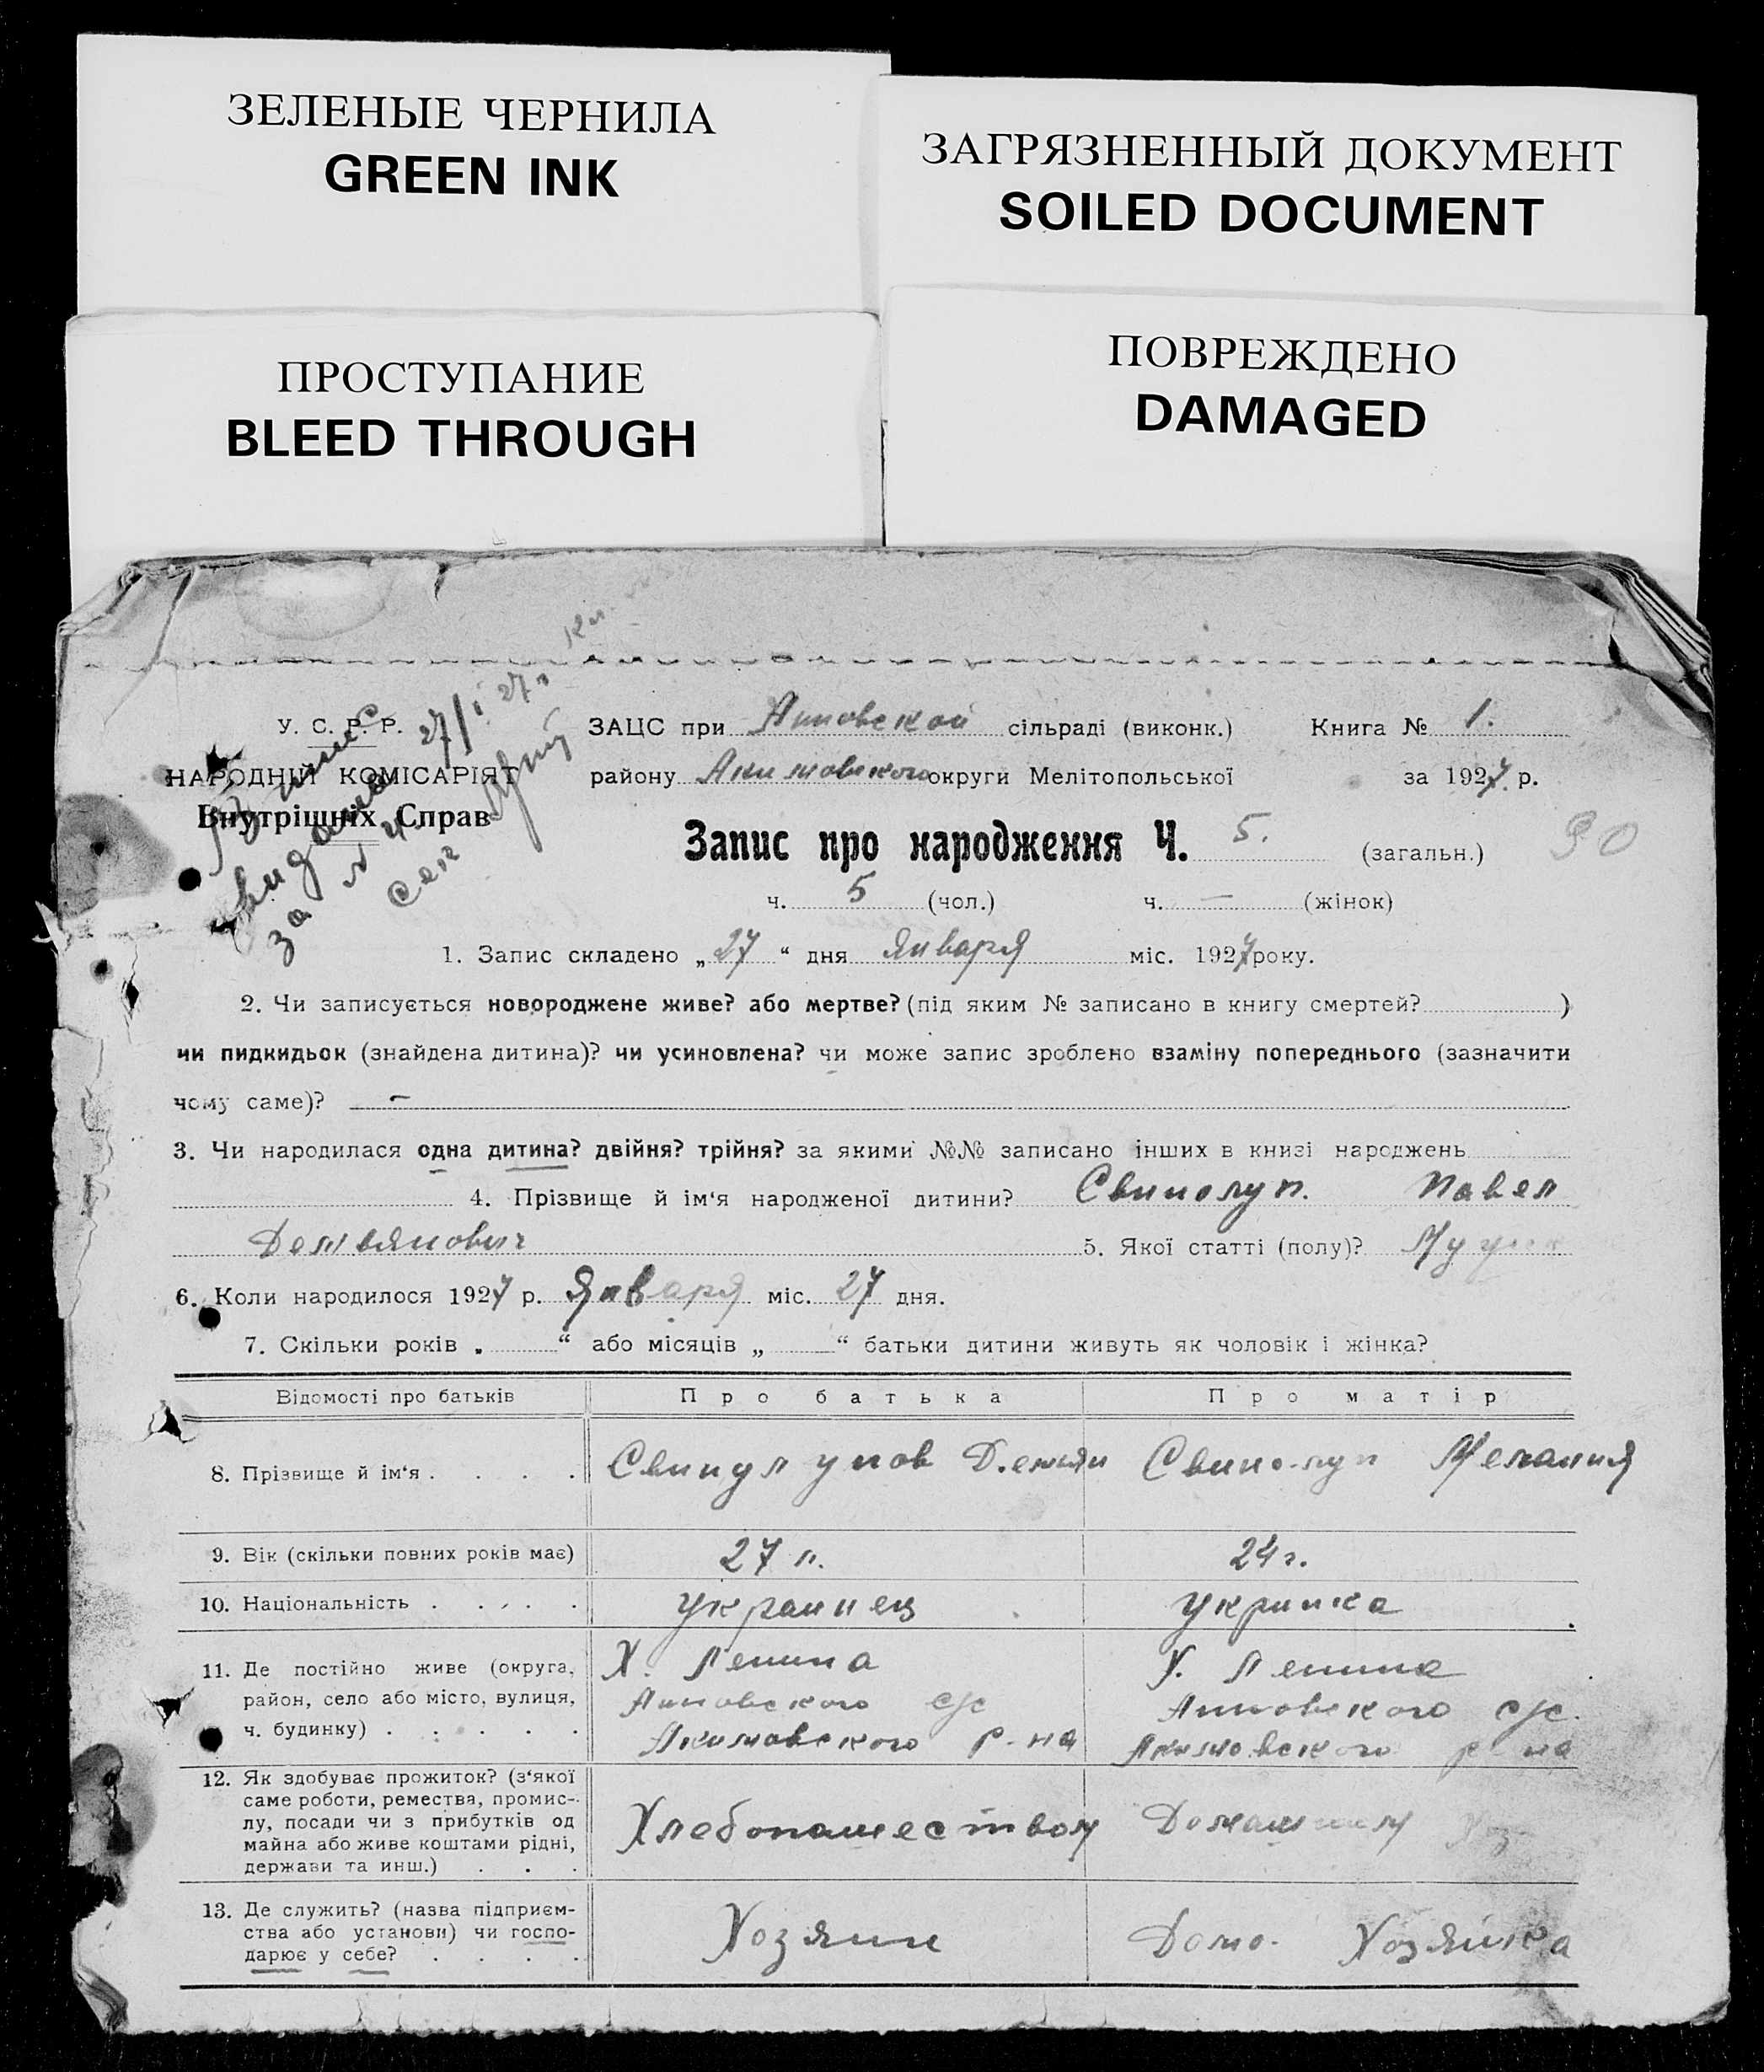 ЗЕЛЕНЫЕ ЧЕРНИЛА
GREEN INK
ЗАГРЯЗНЕННЫЙ ДОКУМЕНТ
SOILED DOCUMENT
ПРОСТУПАНИЕ
BLEED THROUGH
ПОВРЕЖДЕНО
DAMAGED
У. С. Р. Р.
НАРОДНІЙ КОМІСАРІЯТ
Внутрішніх Справ
27/I 27
за № 4
ЗАЦС при Анновской сільраді (виконк.) Книга № 1.
району Акимовского округи Мелітопольської за 1927 р.
Запис про народження Ч. 5. (загальн.) 90
ч. 5 (чол.) ч. — (жінок)
1. Запис складено „27“ дня Января міс. 1927 року.
2. Чи записується новороджене живе? або мертве? (під яким № записано в книгу смертей? )
чи пидкидьок (знайдена дитина)? чи усиновлена? чи може запис зроблено взаміну попереднього (зазначити
чому саме)? —
3. Чи народилася одна дитина? двійня? трійня? за якими №№ записано інших в книзі народжень
4. Прізвище й ім‘я народженої дитини? Свинолуп. Павел
Демьянович 5. Якої статті (полу)?
6. Коли народилося 1927 р. Января міс. 27 дня.
7. Скільки років „ “ або місяців „ “ батьки дитини живуть як чоловік і жінка?
Відомості про батьків Про батька Про матір
8. Прізвище й ім‘я . . . . Демьян Свинолуп Мелания
9. Вік (скільки повних років має) 27 л. 24 г.
10. Національність . . . . . Украинец Укринка
11. Де постійно живе (округа, Х. Ленина Х. Ленина
район, село або місто, вулиця, Анновского с/с Анновского с/с.
ч. будинку) . . . . . Акимовского р-на Акимовского р-на
12. Як здобуває прожиток? (з‘якої
саме роботи, ремества, промис-
лу, посади чи з прибутків од Хлебопашеством Домашним
майна або живе коштами рідні,
держави та инш.) . . .
13. Де служить? (назва підприєм-
ства або установи) чи госпо- Хозяин Домо. Хозяйка
дарює у себе? . . . .